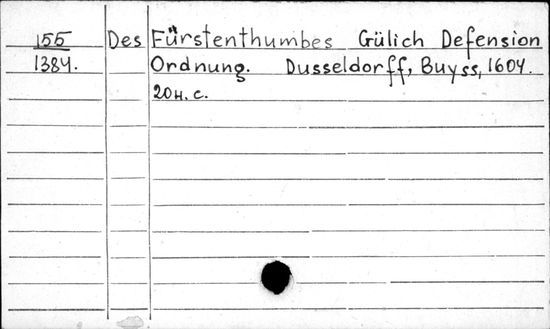 155 Des Fürstenthumbes Gülich Defension
1384. Ordnung. Dusseldorff, Buyss, 1604.
20н. с.